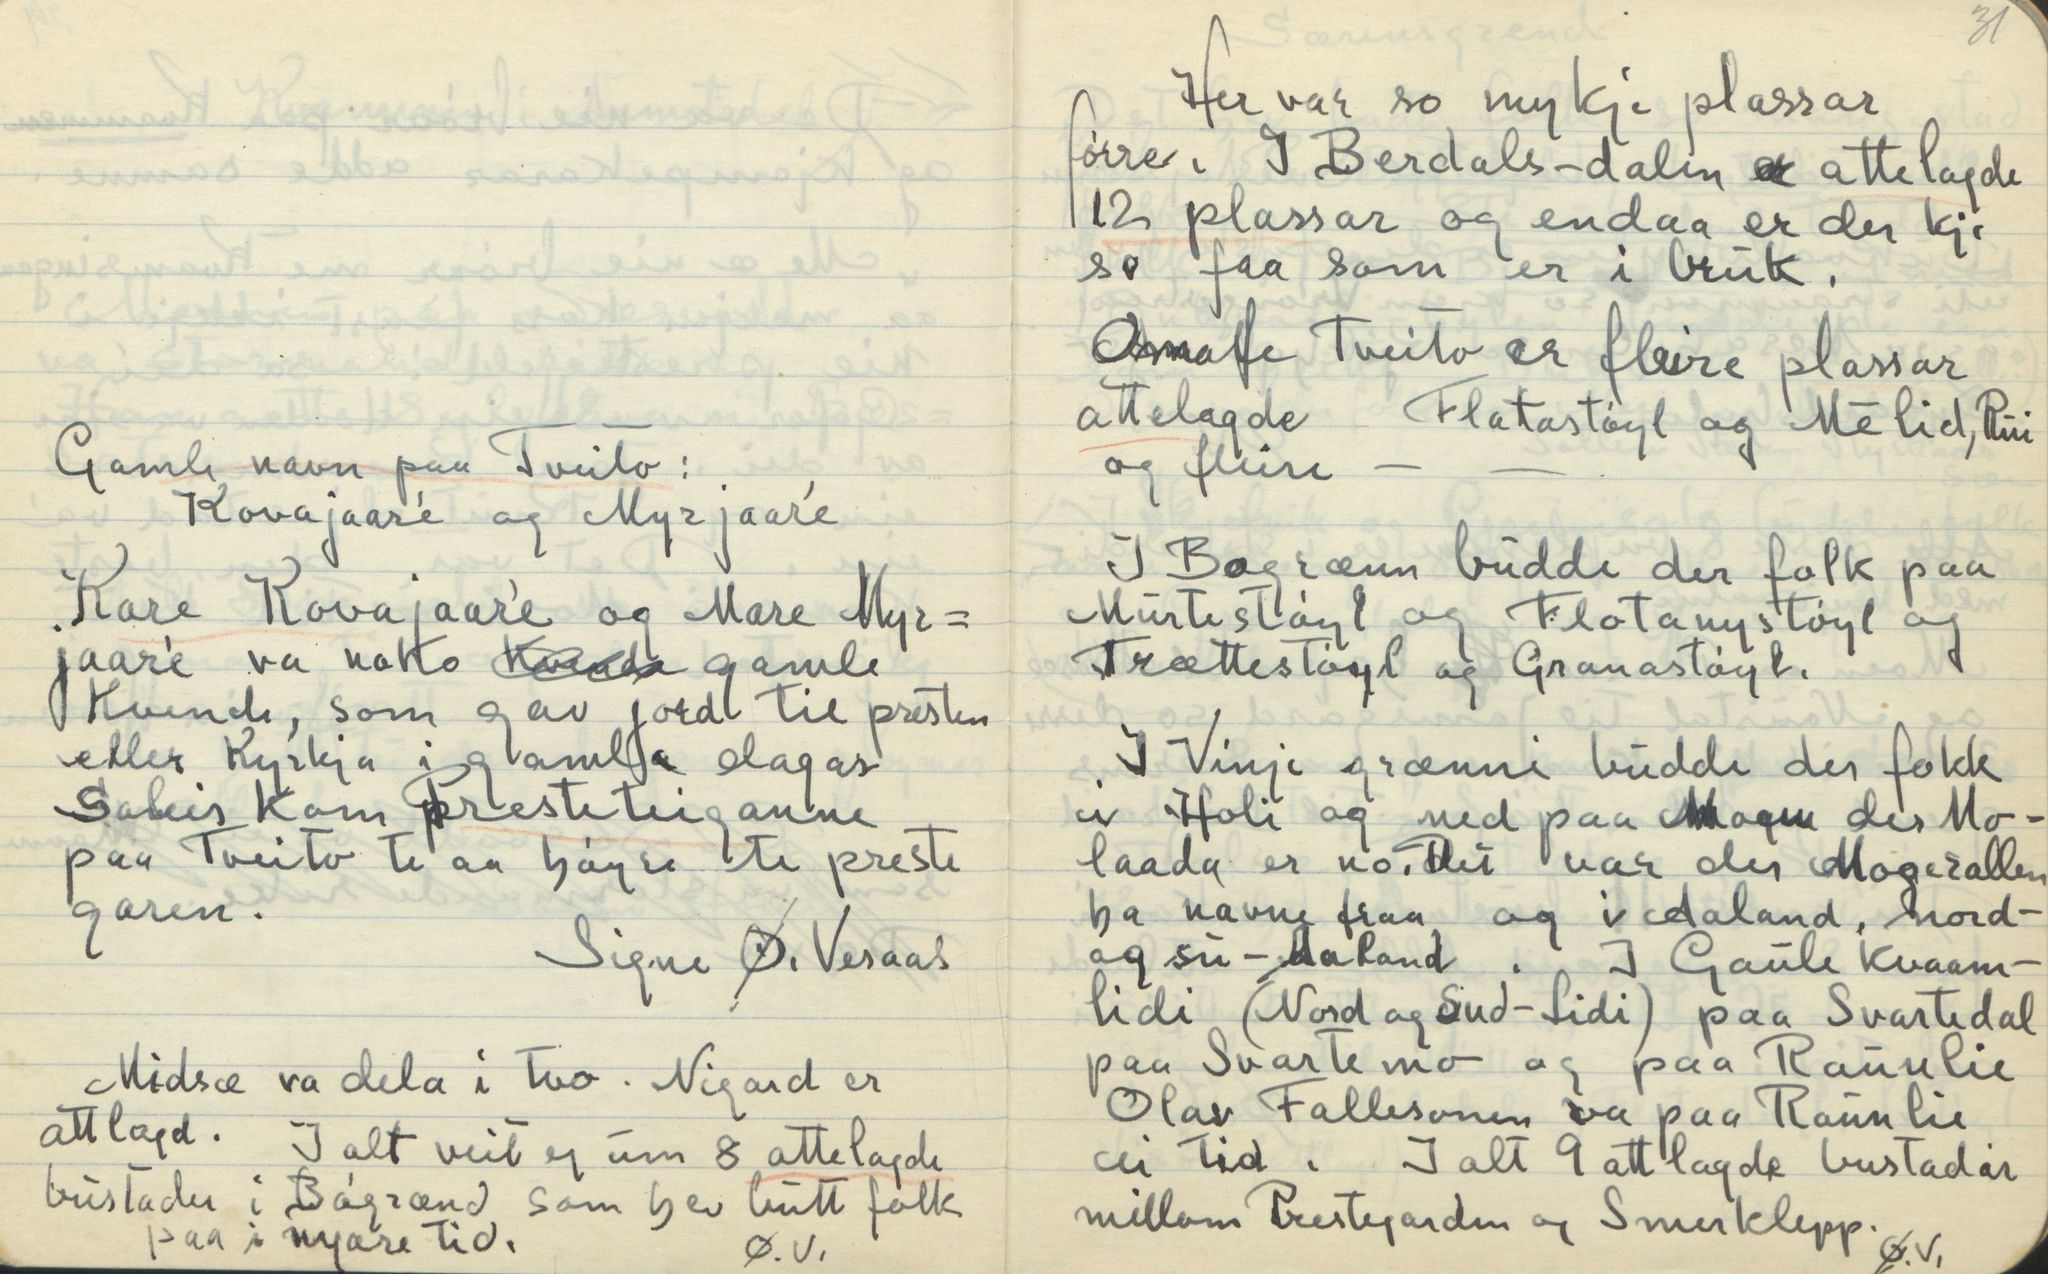 Gamle navn paa Tveito:
Kovajaare og Myrjaare
Kare Kovajaare og Mare Myr=
jaare va noko gamle
Kvende, som gav jord til presten
eller Kyrkja i gamla dagar
Saleis kom Presteteiganne
paa Tveito te aa høyre te preste
garen.
Signe Ø. Vesaas
Midsæ va dela i tvo. Nigard er
attlagd. I alt veit eg um 8 attelagde
bustader i Bøgrænd som hev butt folk
paa i nyare tid.
Ø.V.
31
Her var so mykje plassar
førre. I Berdals-dalen er attelagde
12 plassar og endaa er der kje
so faa som er i bruk.
Tveito er fleire plassar
attelagde Flatastøyl og Mélid, Rui
og fleire — —
I Bøgrænn budde der folk paa
Murtestøyl og Flotanystøyl og
Trættestøyl og Granastøyl.
I Vinje grænni budde der fokk
i Holi og ned paa Mogen der Mo-
laada er no. Det var der Mogerallen
ha navne fraa og i Daland, Nord-
og su-Daland. I Gaule Kvaam-
lidi (Nord og Sud-Lidi) paa Svartedal
paa Svartemo og paa Raunlie
Olav Fallesonen va paa Raunlie
ei tid. I alt 9 attlagde bustadar
millom Prestegarden og Smerklepp.
Ø.V.